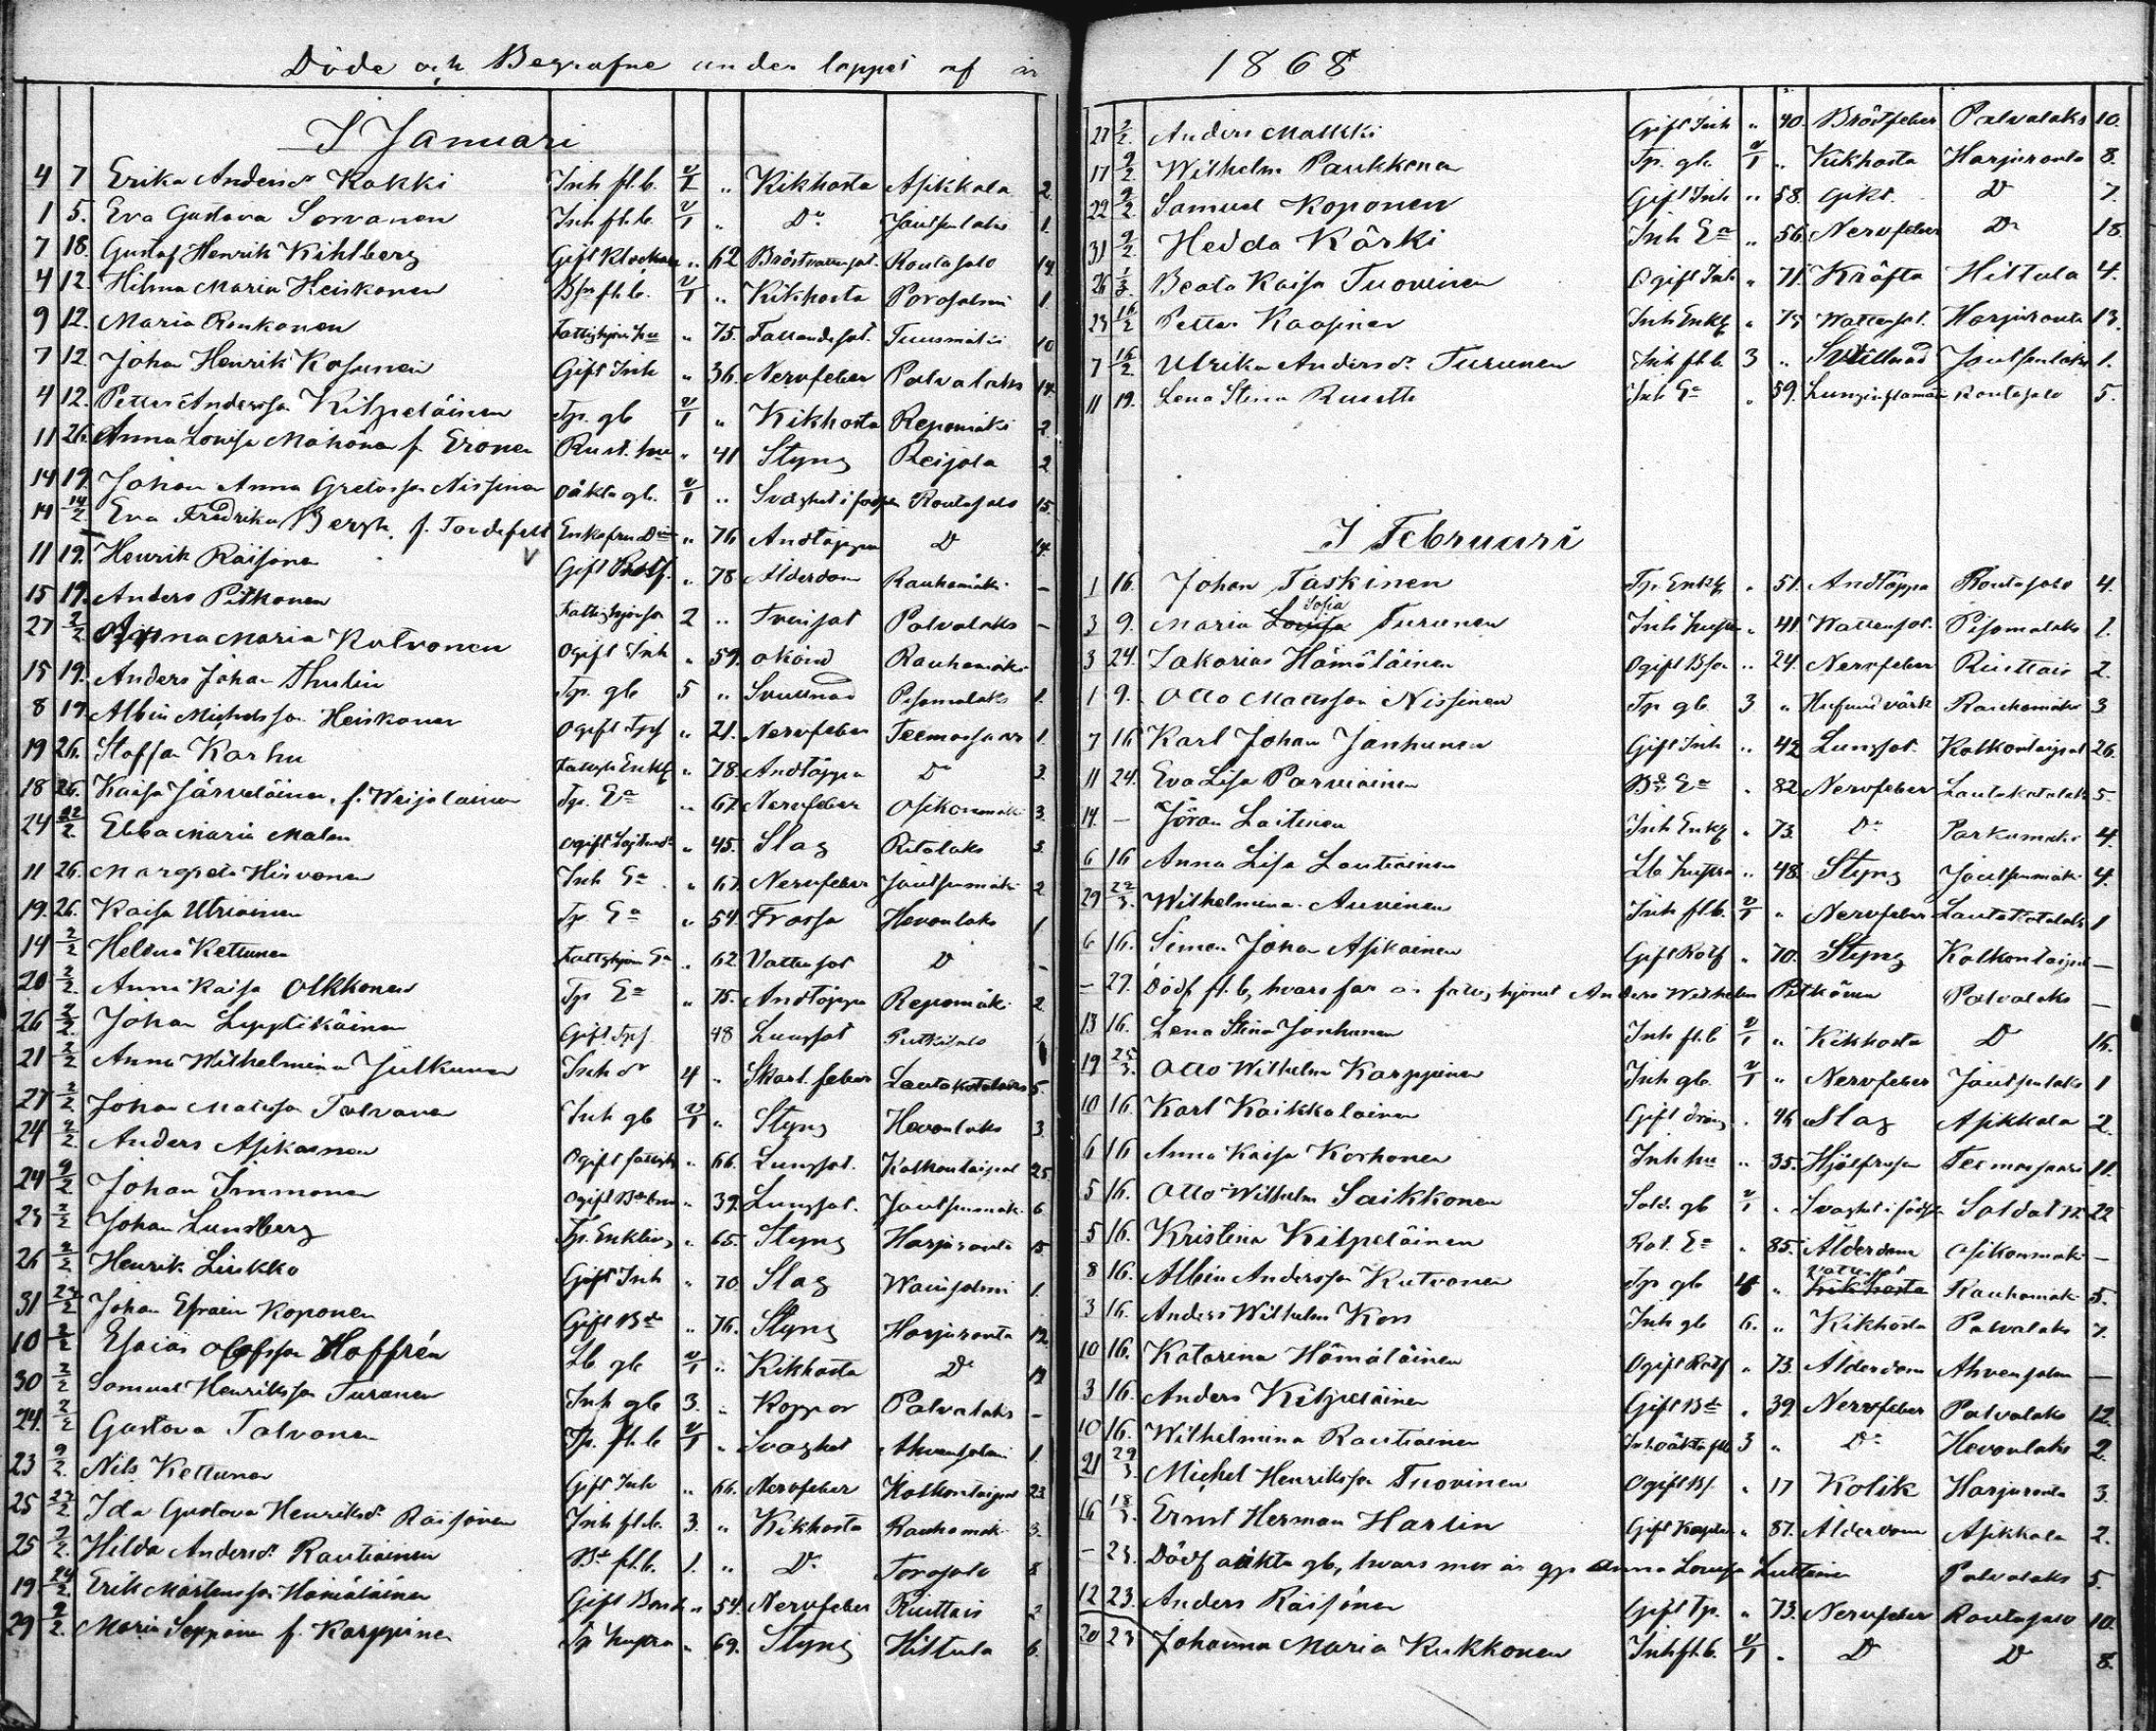 Döde och Begrafne under loppet af år 1868
I Januari
4 7 Erika Andersdr Kakki Inh fl.b. u/1 " Kikhosta Asikkala 2
1 5. Eva Gustava Sorvanen Inh fl.b. u/1 " Do Jäutsenlaks 1.
7 18. Gustaf Henrik Kihlberg Gift Klockare " 62 Bröstvattensot. Rautasalo 14
4 12. Hilma Maria Heiskanen fl.b. u/1 " Kikhosta Porosalmi 1.
9 12. Maria Ronkanen Fattighjon " 75. Fallandesot. Tuusmäki 10
7 12. Johan Henrik Kosunen Gift Inh " 36. Nervfeber Palvalaks 14.
4 12. Petter Andersson Kilpeläinen Tp. gb u/1 " Kikhosta Reponmäki 2
11 26. Anna Lovisa Mähönen f. Eronen Rust. hu " 41 Styng Reijola 2
14 19. Johan Anna Gretasson Nissinen oäkta gb. u/1 " Svaghet i föds Rautasalo 15.
14 14/2 Eva Fredrika Bergh. f. Tavdefelt Enkefru " 76 Andtäppa Do 14.
11 19. Henrik Räisänen Gift Rotf. " 78. Ålderdom Rauhamäki –
15 19. Anders Pitkonen Fattighjonson 2 " Tvinsot Palvalaks –
27 2/2 Anna Maria Kutvonen Ogift Inh " 59. okänd Rauhamäki
15 19. Anders Johan Thulin Tp. gb 5 " Svullnad Pisamalaks 1.
8 19. Albin Michelsson Heiskanen Ogift Tpf " 21. Nervfeber Teemassaari 1.
19 26. Stoffan Karhu Enkl " 78. Andtäppa Do 3.
18 26. Kaisa Järveläinen, f. Weijalainen Tp. Ea " 67. Nervfeber Osikonmäki 3.
24 22/2 Ebba Maria Malen ogift " 45. Slag Ritolaks 3.
11 26. Margreta Hirvonen Inh Ea " 67. Nervfeber Jäutsenmäki 2
19. 26. Kaisa Utriainen Tp Ea " 54. Frossa Hevonlaks 1
14 2/2 Helena Kettunen Fattighjon Ea " 62. Vattusot Do –
20 2/2. Anna Kaisa Olkkonen Tp Ea " 75. Andtäppa Reponmäki 2.
26 9/2. Johan Lyytikäinen Gift Tpf. 48 Lungsot Putkisalo 1
21 2/2 Anna Wilhelmina Jülkunen Inh dr 4 " Skarl. feber Lautakotalaks 5.
27 2/2. Johan Matsson Talvanen Inh gb u/1 " Styng Hevonlaks 3.
24 9/2. Anders Asikainen Ogift fattighj " 66. Lungsot. Kolkontaipal 25.
24 9/2 Johan Immonen ogift " 39. Lungsot. Jäutsenmäki 6
23 2/2 Johan Lundberg Tp. Enkling " 65. Styng Harjuranta 15
26 9/2. Henrik Liukko Gift Inh " 70. Slag Wainsalmi 1.
31 23/2 Johan Efraim Koponen Gift Bd " 76. Styng Harjuranta 12.
10 2/2 Esaias Olofsson Hoffrén Lb gb u/1 " Kikhosta Do 12
30 2/2 Samuel Henriksson Turunen Inh gb 3. " Koppor Palvalaks –
24. 2/2 Gustava Talvanen Tp. fl. b u/1 " Svaghet Ahvensalmi 1.
23 9/2. Nils Kettunen Gift Inh " 66. Nervfeber Kolkontaipal 23.
25 23/2 Ida Gustava Henriksdr Räisänen Inh fl.b. 3. " Kikhosta Rauhamäki 3.
25 2/2. Hilda Andersdr Rautiainen Bd fl.b. 1. " Do Torasalo 8
19. 24/2. Erik Mårtensson Hämäläinen Gift Bond " 54. Nervfeber Ruuttais 2
29 9/2. Maria Seppänen f. Karppinen Tp hustru " 69. Styng Hiltula 6.
27 2/2. Anders Malkki Gift Inh " 40. Bröstfeber Palvalaks 10.
17 9/2. Wilhelm Paukkonen Tp. gb. u/1 " Kikhosta Harjuranta 8.
22 9/2. Samuel Koponen Gift Inh " 58. Gikt. Do 7.
31 9/2. Hedda Kärki Inh Ea " 56. Nervfeber Do 18
26 1/3. Beata Kaisa Tuovinen Ogift Inh " 71. Kräfta Hiltula 4.
23 16/2 Petter Kaasinen Inh Enkl " 75 Wattusot. Harjuranta 13.
7 16/2. Ulrika Andersdr Turunen Inh fl.b 3 " Svullnad Jäutsenlaks 1.
11 19. Lena Stina Rusetti Inh Ea " 59. Lunginflamation Rautasalo 5.
I Februari
1 16. Johan Taskinen Tp. Enkl " 51. Andtäppa Rautasalo 4.
3 9. Maria Lovisa Sofia Turunen Inh hustru " 41 Wattusot. Pisamalaks 1.
3 24. Zakarias Hämäläinen Ogift Bson " 24. Nervfeber Ruuttais 2.
1 9. Otto Matsson Nissinen Tp gb. 3 " Hufvudvärk Rauhamäki 3
7 16 Karl Johan Janhunen Gift Inh " 42 Lungsot. Kolkontaipal 26.
11 24. Eva Lisa Parviainen Bd Ea " 82 Nervfeber Lautakotalaks 5.
14. – Jöran Laitinen Inh Enkl " 73. Do Parkumäki 4.
6 16 Anna Lisa Lautiainen Lb hustru " 48. Styng Jäutsenmäki 4.
29 22/3. Wilhelmina Auvinen Inh fl.b. u/1 " Nervfeber Lautakotalaks 1
6 16. Simon Johan Asikainen Gift Rotf " 70. Styng Kolkontaipal –
– 27. Dödf. fl. b, hvars far är fattighjonet Anders Wilhelm Pitkänen Palvalaks –
13 16. Lena Stina Janhunen Inh fl.b u/1 " Kikhosta Do 14.
19 25/3. Otto Wilhelm Karppinen Inh gb. u/1 " Nervfeber Jäutsenlaks 1
10 16. Karl Kaikkalainen Gift dräng " 46 Slag Asikkala 2.
6 16 Anna Kaisa Korhonen Inh hu " 35. Teemassaari 11.
5 16. Otto Wilhelm Saikkonen Sold. gb u/1 " Svaghet i föds Soldat N: 22
5 16. Kristina Kilpeläinen Rot. Ea " 85. Ålderdom Osikonmäki –
8 16. Albin Andersson Kutvonen Tp gb 4 " Vattusot Kikhosta Rauhamäki 5.
3 16. Anders Wilhelm Kors Inh gb 6. " Kikhosta Palvalaks 7.
10 16. Katarina Hämäläinen Ogift Rotf " 73. Ålderdom Ahvensalmi –
3 16. Anders Kilpeläinen Gift Bd " 39 Nervfeber Palvalaks 12.
10 16. Wilhelmina Rautiainen Inh oäkta fl.b 3 " Do Hevonlaks 2.
21 29/3. Michel Henriksson Tuovinen Ogift Bs. " 17 Kolik Harjuranta 3.
16 18/3. Ernst Herman Harlin Gift Kapten " 87. Ålderdom Asikkala 2.
– 23. Dödf oäkta gb, hvars mor är gp Anna Lovisa Luttinen Palvalaks 5.
12 23. Anders Räisänen Gift Tp. " 73. Nervfeber Rautasalo 10.
20 23 Johanna Maria Kukkonen Inh fl.b. u/1 " Do Do 8.